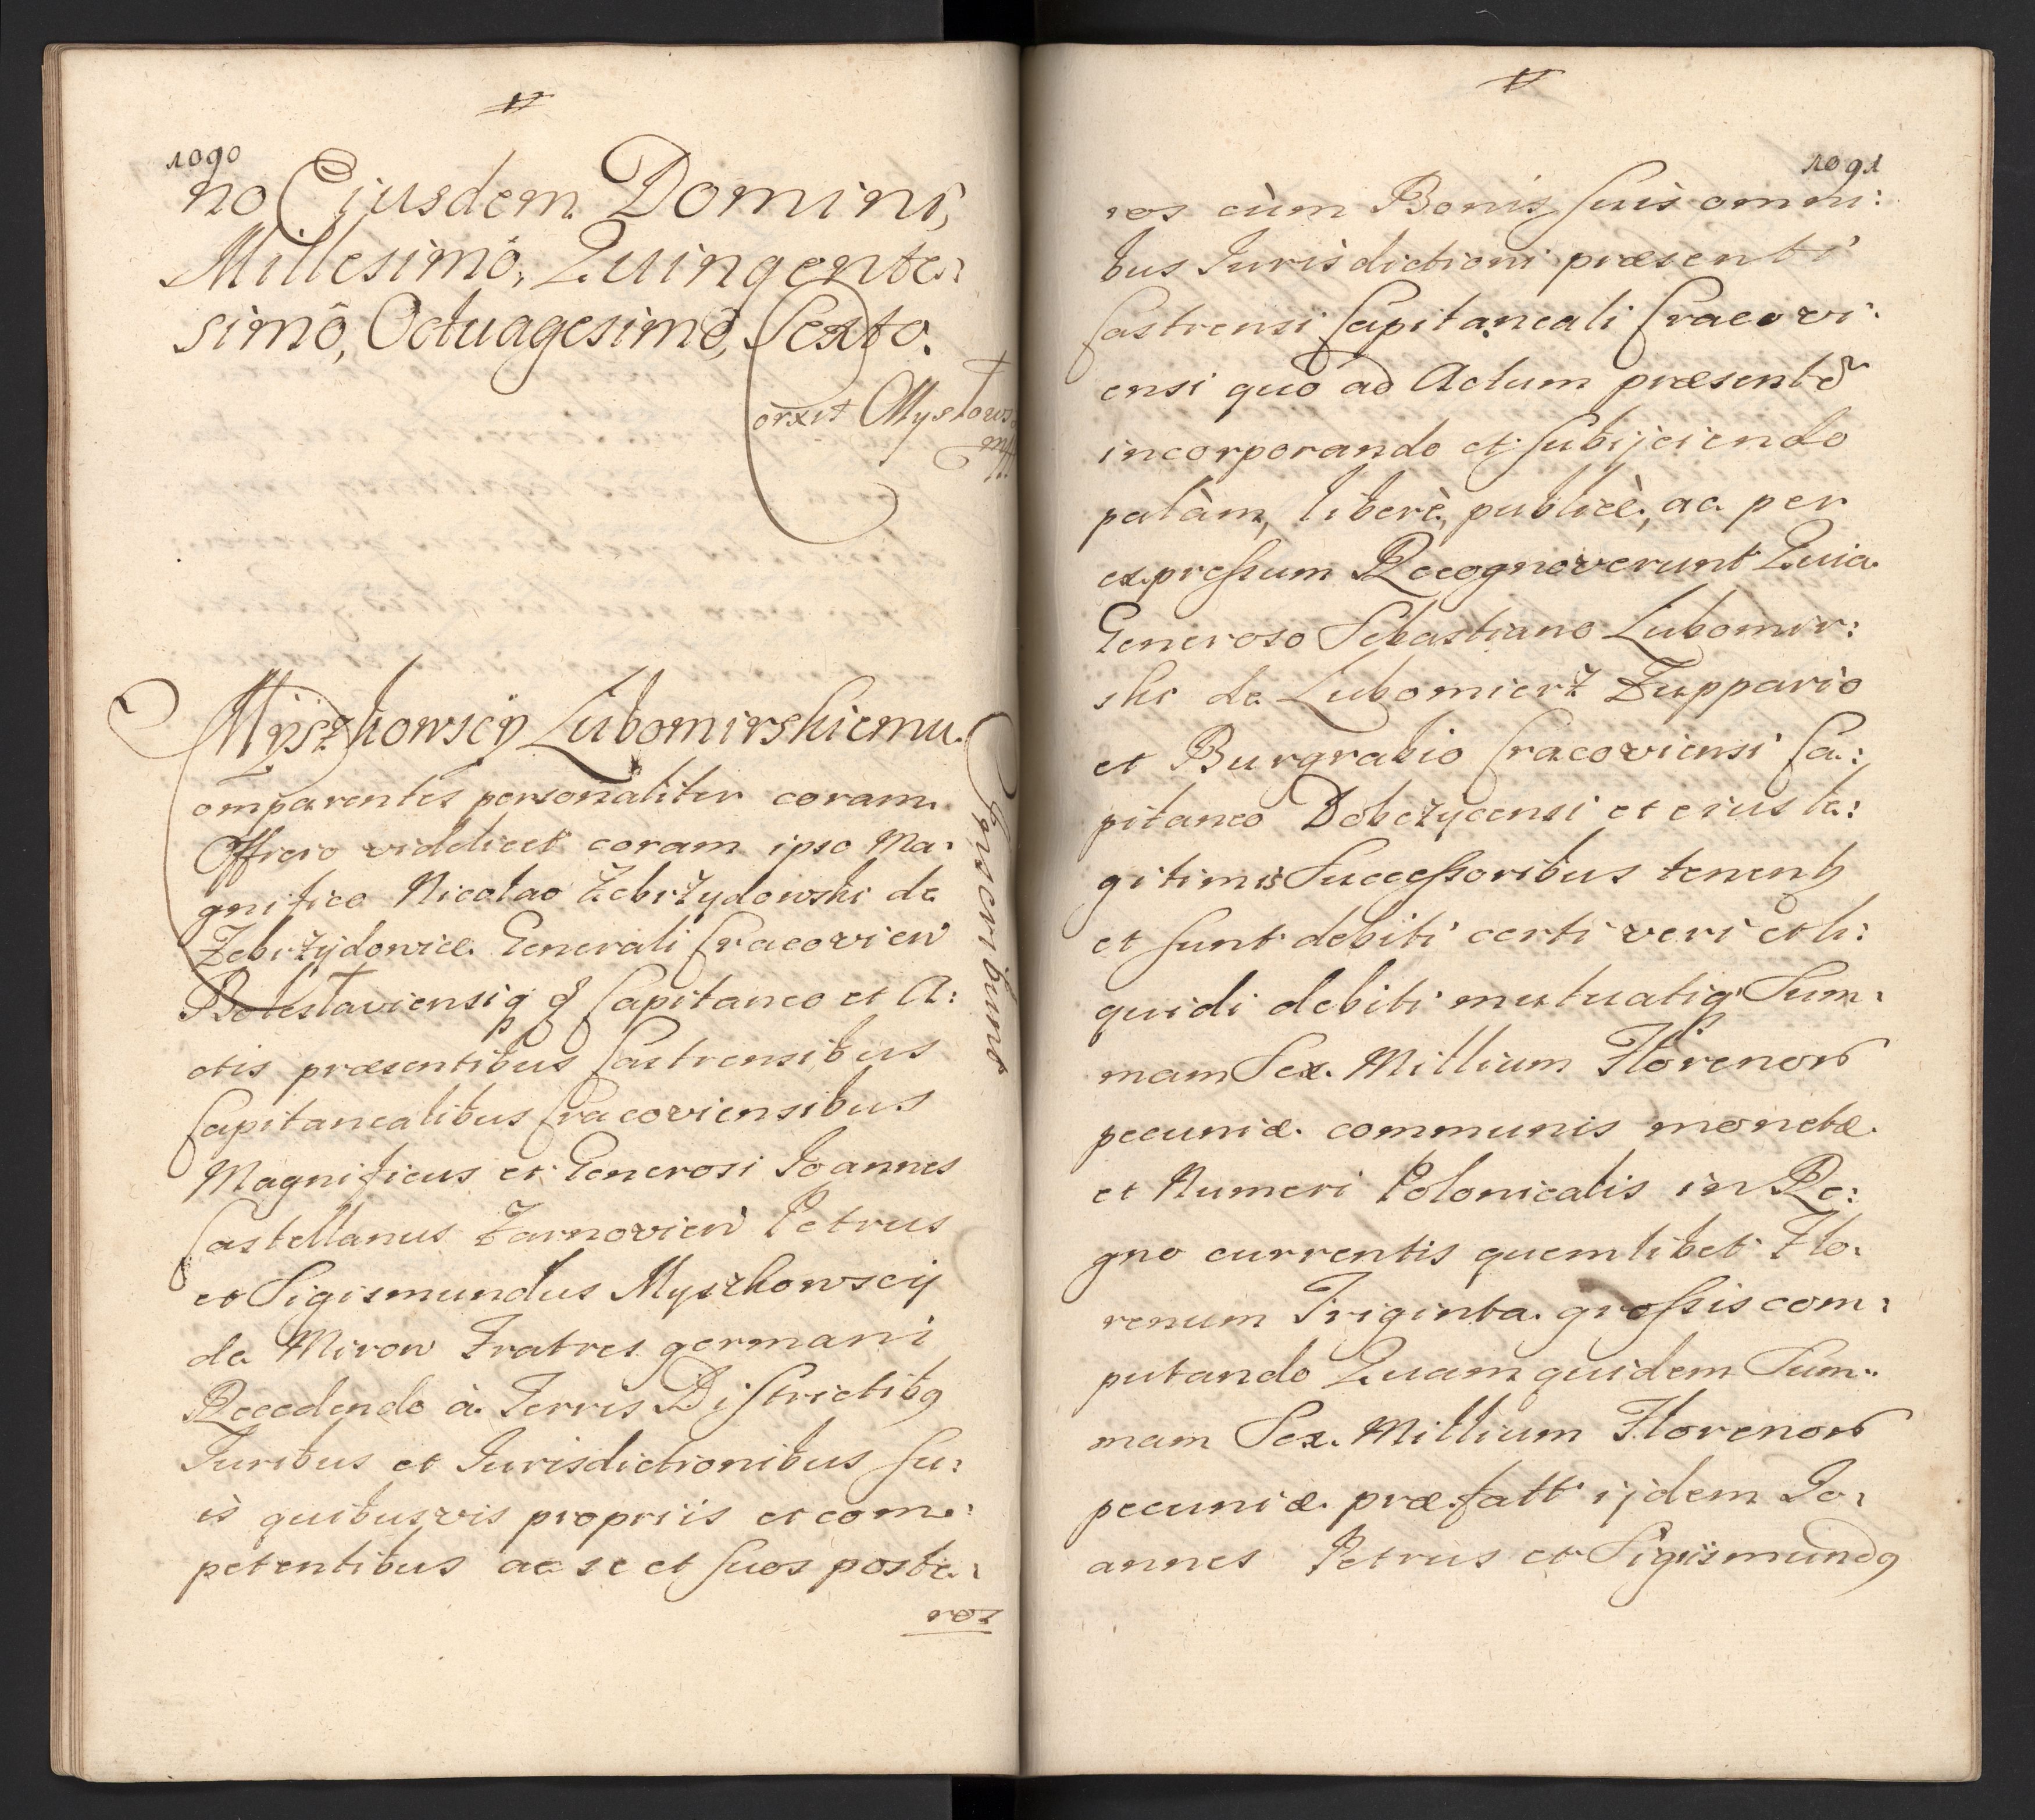 1090
no Ejusdem Domini,
Millesimô, Quingente:
simô, Octuagesimô, Sexto.
Myszkowscÿ Lubomirskiemu.
Inscribunt
omparentes personaliter coram
Officio videlicet coram ipso Ma:
gnifico Nicolao Zebrzydowski de
Zebrzÿdowice Generali Cracovien
Boleslaviensiq q Capitaneo et A:
ctis præsentibus Castrensibus
Capitanealibus Cracoviensibus
Magnificus et Generosi Joannes
Castellanus Żarnovien Petrus
et Sigismundus Myszkowscij
de Mirow Fratres germani
Recedendo à Terris Districtibq
Juribus et Jurisdictionibus su:
is quibusvis propriis et com:
petentibus ac se et suos poste:
ros
1091
ros cùm Bonis suis omni:
bus Jurisdictioni præsenti
Castrensi Capitaneali Cracovi:
ensi quô ad Actum præsente
incorporando et subijciendo
palàm, liberè, publicè, ac per
expressum Recognoverunt Quia
Generoso Sebastiano Lubomir:
ski de Lubomierz Zuppario
et Burgrabio Cracoviensi Ca:
pitaneo Dobczycensi et eius le:
gitimis Successoribus tenent
et sunt debiti certi veri et li:
quidi debiti mutuatiq Sum:
mam Sex Millium Florenor
pecuniæ communis monetæ
et Numeri Polonicalis in Re:
gno currentis quemlibet Flo:
renum Triginta grossis com:
putando Quam quidem Sum:
mam Sex Millium Florenor
pecuniæ præfatt ijdem Jo:
annes Petrus et Sigismundq